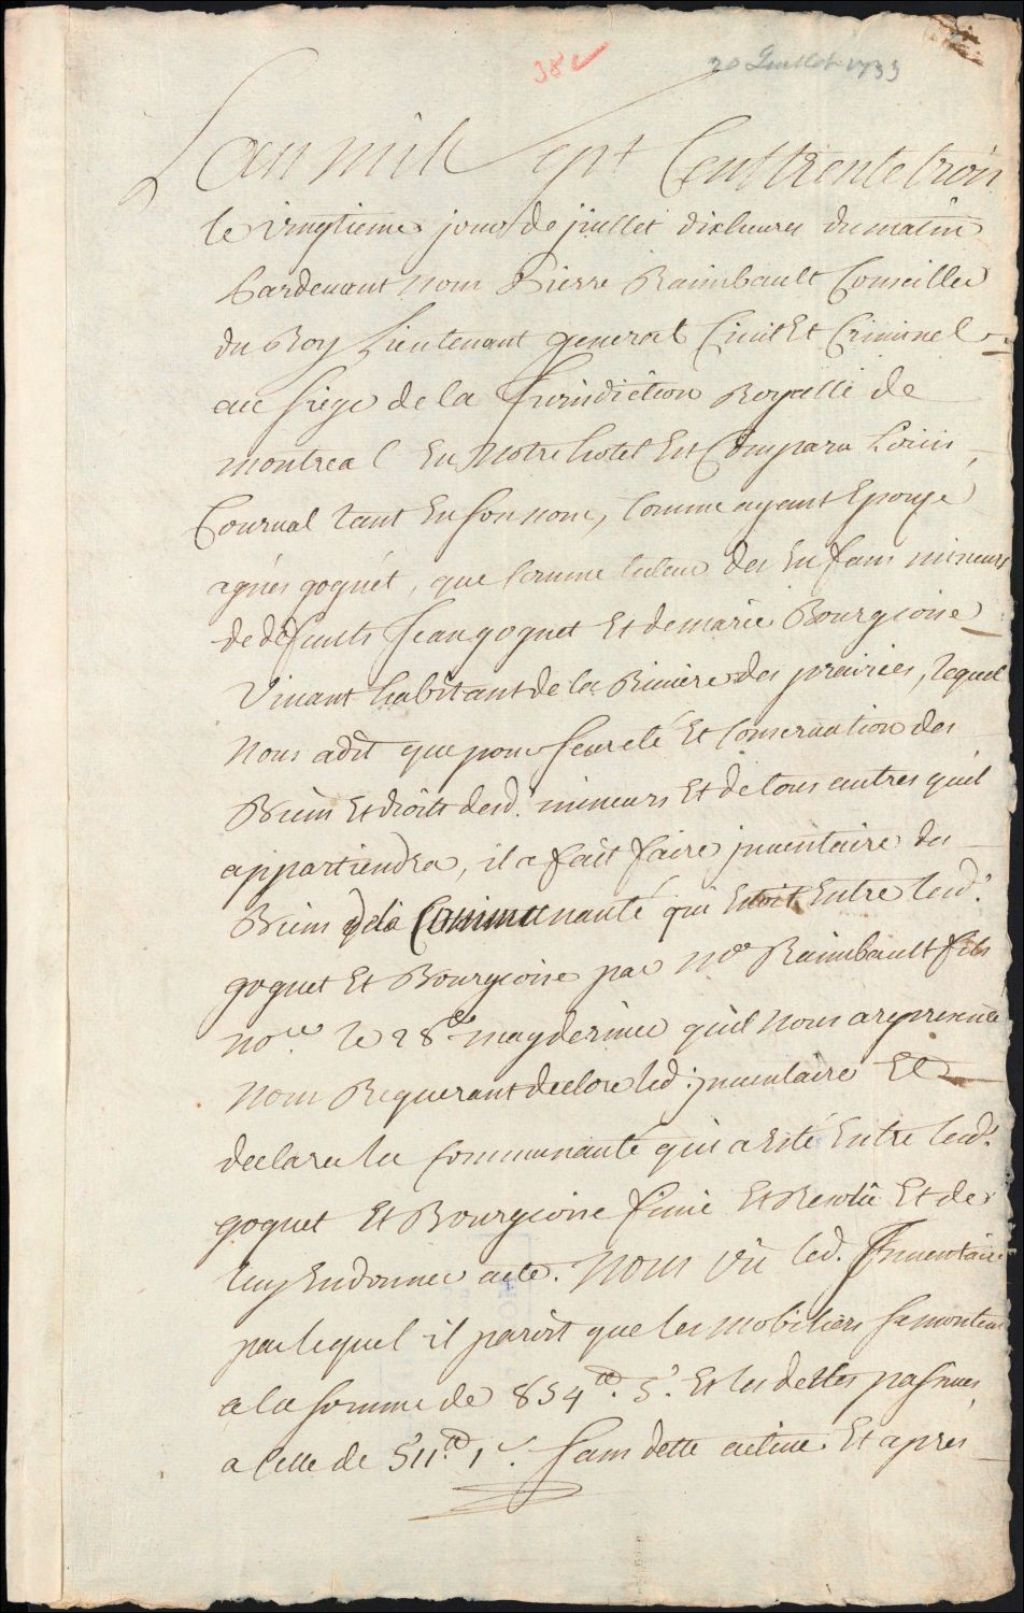 38
20 Juillet 1733
Lan mil sept Cent trente trois
le vingtieme jour de juillet dix heures du matin
Pardevant nous Pierre Raimbault Conseiller
du Roy Lieutenant general Civil Et Criminel
au siege de la Jurisdiction Royalle de
montreal En Notre hotel Est Comparu Louis
Cournal tant En son nom, comme ayant Epousé
agnes goguet, que comme tuteur des Enfans mineurs
de deffunts Jean goguet Et de marie Bourgioise
Vivant habitant de la Riviere des prairies, lequel
Nous a dit que pour seureté Et Conservation des
Biens Et droits desd. mineurs Et de tous autres quil
appartiendra, il a fait faire jnventaire des
Biens de la Communauté qui Estoit Entre led.
goguet Et Bourgioise par Me Raimbault fils
nore le 28e may dernier quil Nous a representé
Nous Requerant de clore led. jnventaire Et
declarer la communauté qui a Esté Entre led.
goguet Et Bourgioise finie Et Resolüe Et de
luy En donner acte. Nous Vû led. Jnventaire
par lequel il paroit que les mobiliers se montent
a la somme de 854tt. 5s. Et les dettes passives
a celle de 511tt. 1s. sans dette active. Et apres